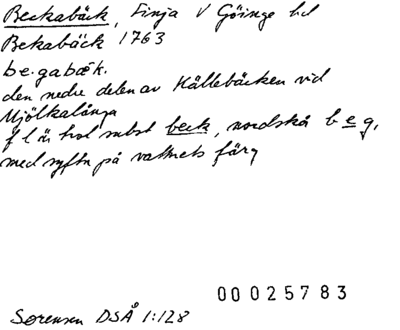 Beckabäck, Finja V Göinge hd
Bekabäck 1763
be·gabæk.
den nedre delen av Källebäcken vid
Mjölkalånga
f l är trol subst beck, nordskå beg,
med syftn på vattnets färg
00025783
Sørensen DSÅ 1:128